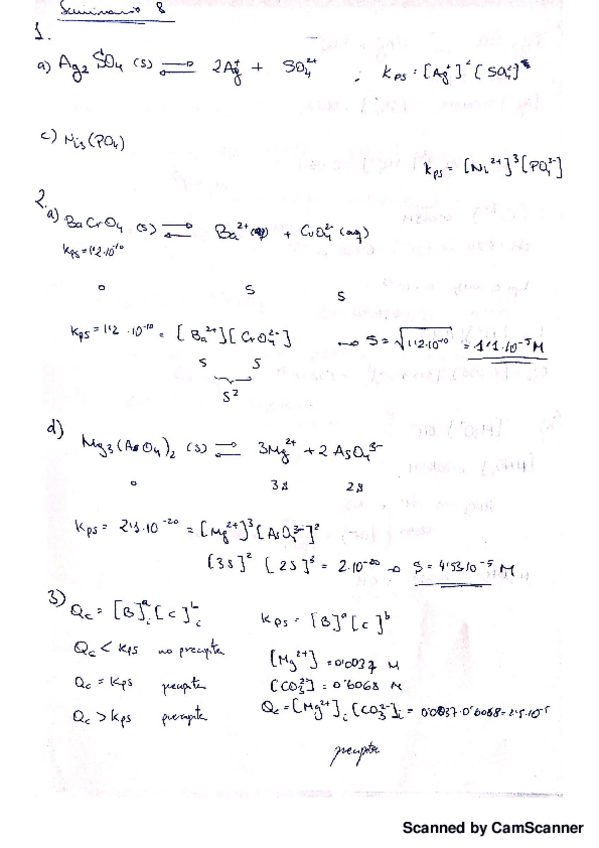 Seminario 8
1.
a) Ag2 SO4 (s) ⇌ 2Ag+ + SO4 2+ ; Kps = [Ag+]² [SO4]
c) Ni3(PO4)
Kps = [Ni2+]³[PO4 3-]
2.
a) BaCrO4 (s) ⇌ Ba2+(aq) + CrO4 2- (aq)
Kps=1'2·10-10
0 S S
Kps=1'2·10-10 = [Ba2+][CrO4 2-] → S=√1'2·10-10 = 1'1·10-5 M
S S
S2
d) Mg3(AsO4)2 (s) ⇌ 3Mg2+ + 2AsO4 3-
0 3s 2s
Kps = 2'1·10-20 = [Mg2+]³[AsO4 3-]²
[3S]² [2S]³ = 2·10-20 → S=4'53·10-5 M
3) Qc = [B]a i [C]b i Kps = [B]a[C]b
Qc < Kps no precipita
[Mg2+] = 0'0037 M
Qc = Kps precipita
[CO3 2-] = 0'0068 M
Qc > Kps precipita
Qc=[Mg2+]i [CO3 2-]i = 0'0037·0'0068=2'5·10-5
precipita
Scanned by CamScanner